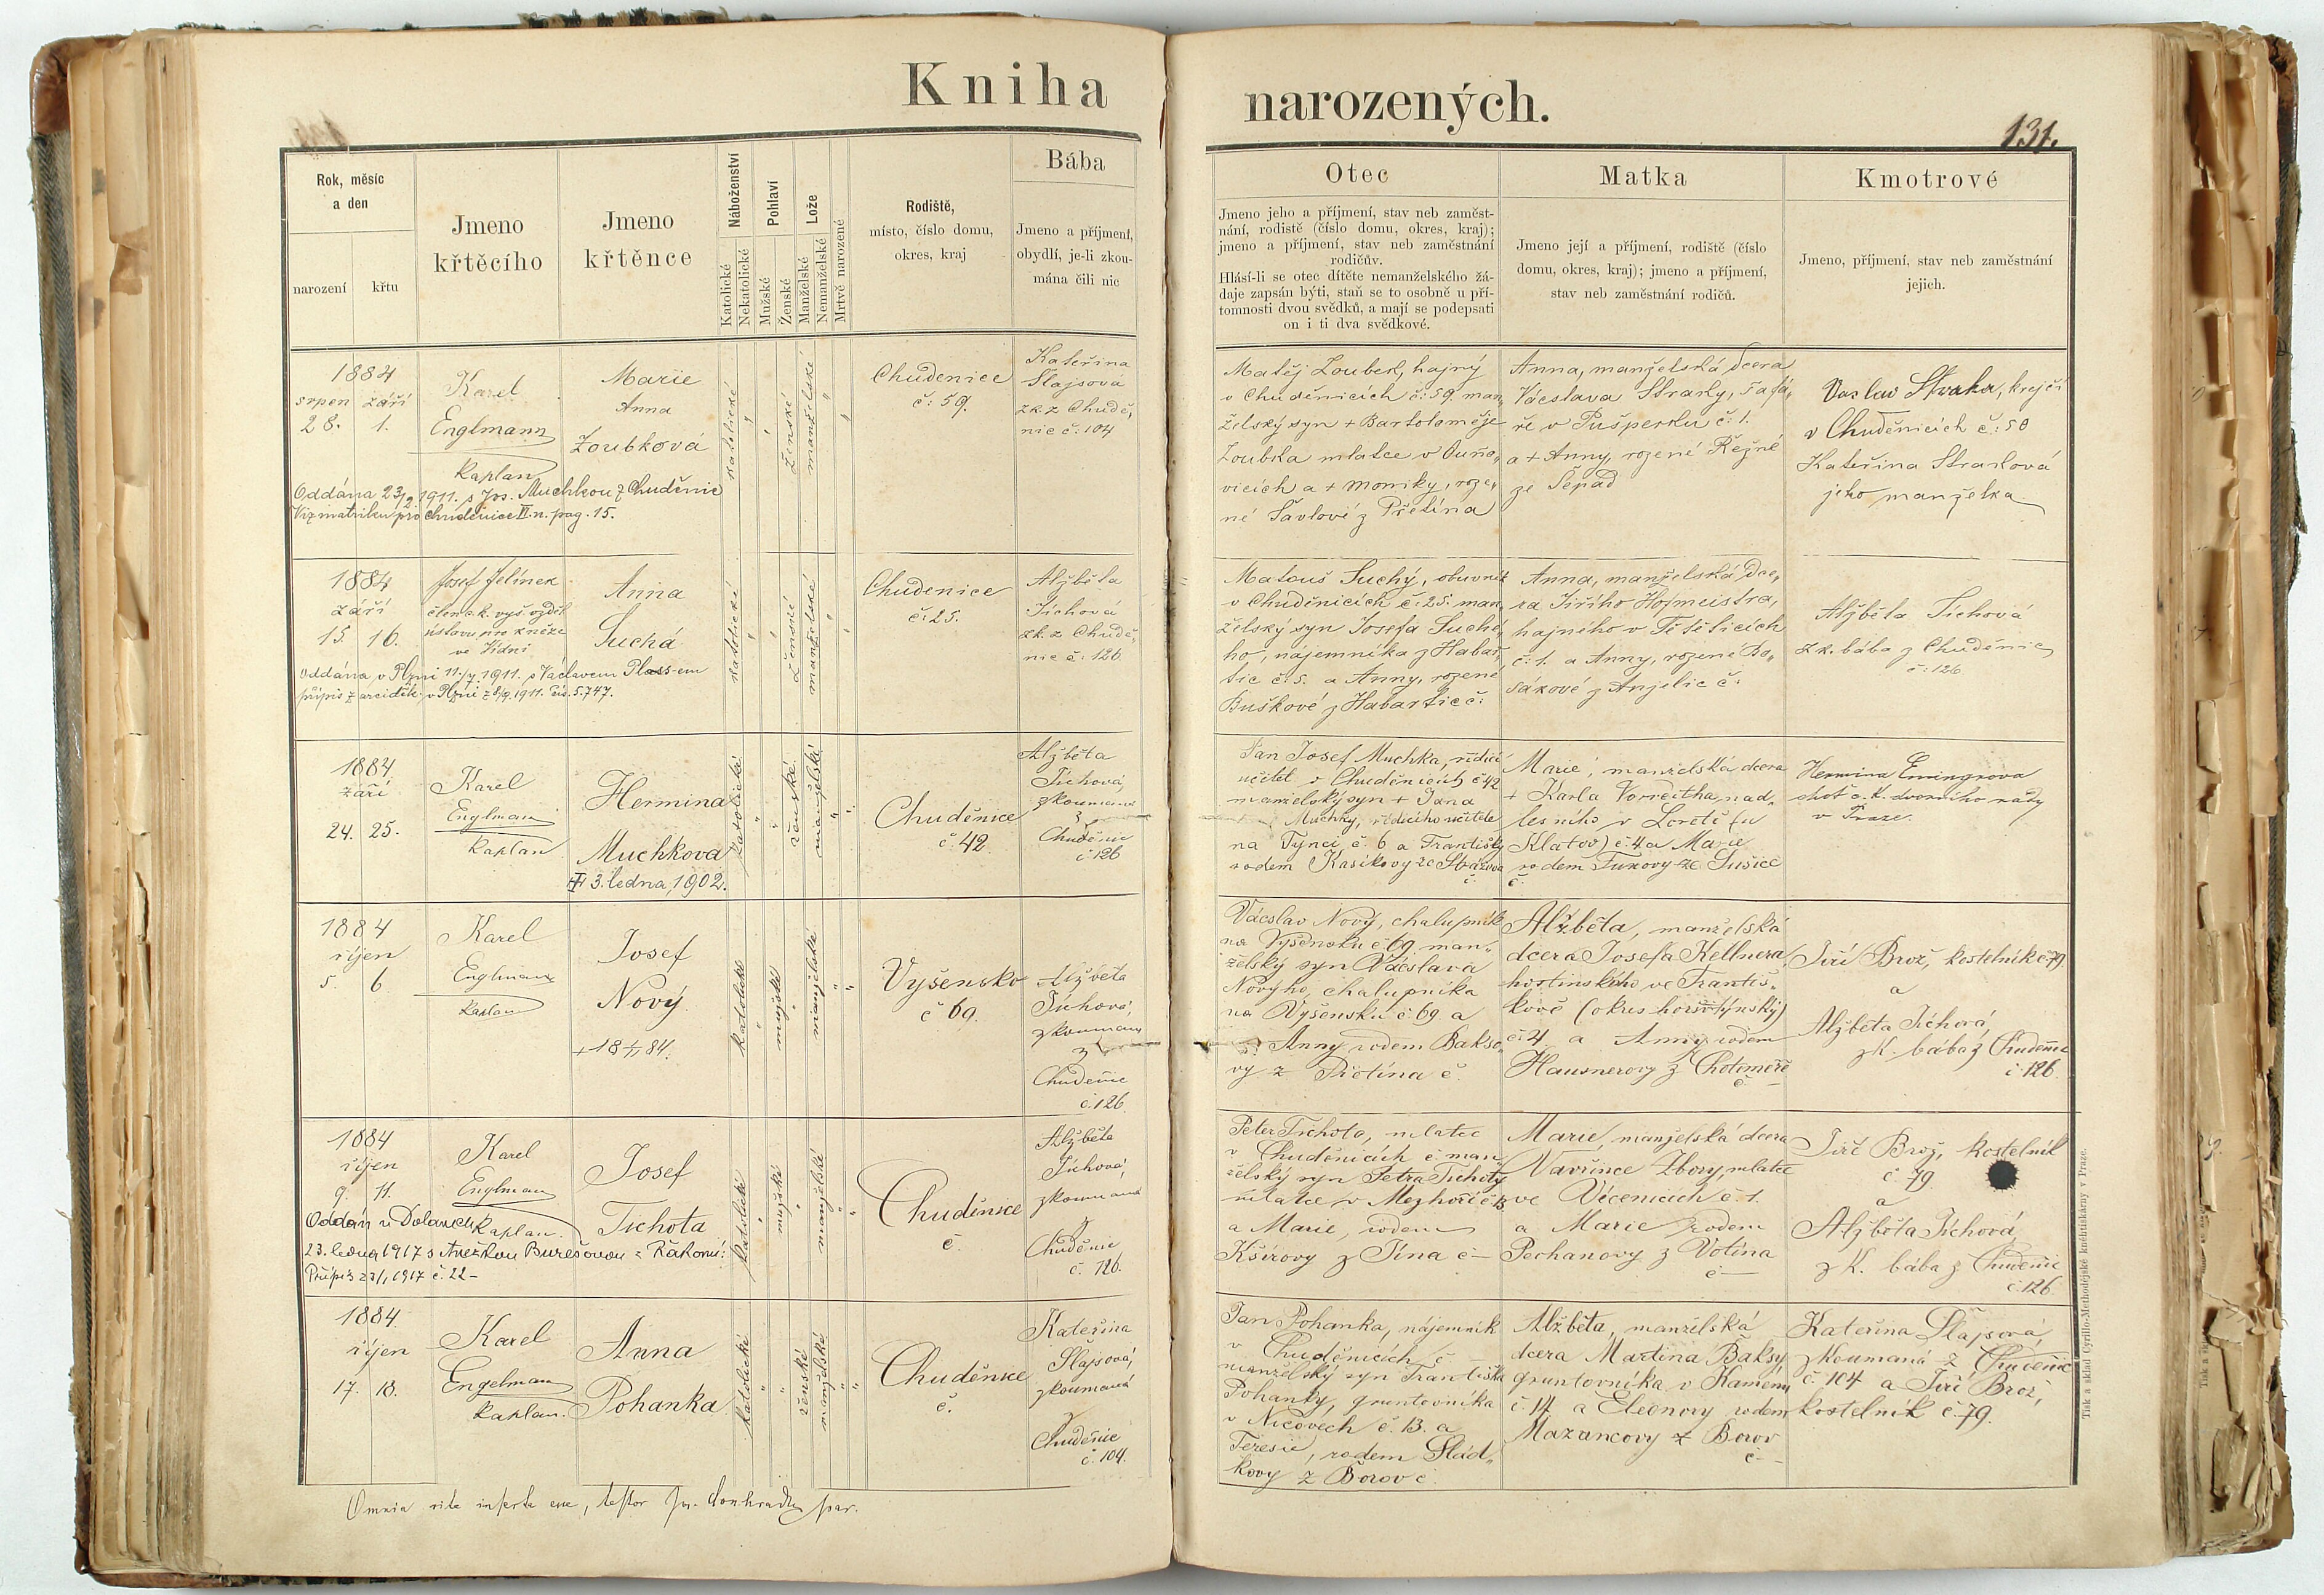 Kniha
narozených.
131.
Rok, měsíc
a den
narození
křtu
Jmeno
křtěcího
Jmeno
křtěnce
Náboženství
Katolické
Nekatolické
Pohlaví
Mužské
Ženské
Lože
Manželské
Nemanželské
Mrtvě narozené
Rodiště,
místo, číslo domu,
okres, kraj
Bába
Jmeno a příjmení,
obydlí, je-li zkou-
mána čili nic
Otec
Jmeno jeho a příjmení, stav neb zaměst-
nání, rodiště (číslo domu, okres, kraj);
jmeno a příjmení, stav neb zaměstnání
rodičův.
Hlásí-li se otec dítěte nemanželského žá-
daje zapsán býti, staň se to osobně u pří-
tomnosti dvou svědků, a mají se podepsati
on i ti dva svědkové.
Matka
Jmeno její a příjmení, rodiště (číslo
domu, okres, kraj); jmeno a příjmení,
stav neb zaměstnání rodičů.
Kmotrové
Jmeno, příjmení, stav neb zaměstnání
jejich.
1884
srpen září
28. 1.
Karel
Englmann
kaplan
Marie
Anna
Zoubková
katolické
ženské
manželské
Chudenice
č: 59.
Kateřina
Šlajsová
zk. z Chudě,
nic č. 104
Oddána 23/2 1911. s Jos. Muchkou z Chuděnic
Viz matriku pro Chuděnice II. n. pag. 15.
Matěj Zoubek, hajný
v Chuděnicích č: 59. man,
želský syn + Bartoloměje
Zoubka mlatce v
vicích a + Moniky, roze,
né Šavlové z Přetína
Anna, manželská dcera
Václava Straky, šafá,
ře v Pušperku č: 1.
a + Anny, rozené Řežné
ze Šepad
Vaclav Straka, krejčí
v Chuděnicích č: 50
Kateřina Straková
jeho manželka
1884
září
15. 16.
Josef Jelínek
člen c. k. vyš. vzděl.
ústavu pro kněze
ve Vídni
Anna
Suchá
katolické
ženské
manželské
Chudenice
č: 25.
Alžběta
Tichová
zk. z Chudě,
nic č. 126
Oddána v Plzni 11/7 1911. s Václavem Ploss-em
přípis z arciděk. v Plzni z 8/9 1911. čís. 5.747.
Matouš Suchý, obuvník
v Chuděnicích č: 25. man,
želský syn Josefa Suché,
ho, nájemníka z Habar,
tic č: 5. a Anny, rozené
Buškové z Habartic č:
Anna, manželská dce,
ra Jiřího Hofmeistra,
hajného v Těšeticích
č: 1. a Anny, rozené Bo,
šákové z Anjelic č:
Alžběta Tichová
zk. bába z Chuděnic
č: 126
1884
září
24. 25.
Karel
Englman
kaplan
Hermina
Muchkova
3. ledna, 1902.
katolické
ženské
manželské
Chuděnice
č. 42.
Alžběta
Tichová,
zkoumaná
z
Chuděnic
č 126
Jan Josef Muchka, řídící
učitel v Chuděnicích č 42
manželský syn + Jana
Muchky, řídícího učitele
na Týnci č. 6 a Františky
rodem Kasíkovy ze Strážova
č.
Marie, manželská dcera
+ Karla Vorreitha, nad-
lesního v Loretě (u
Klatov) č. 4 a Marie
rodem Fukovy ze Sušice
č.
Hermina Emingrova
choť c. k. dvorního rady
v Praze.
1884
říjen
5. 6
Karel
Englman
kaplan
Josef
Nový
katolické
mužské
manželské
Vyšensko
č 69.
Alžběta
Tichová,
zkoumaná
z
Chuděnic
č. 126
Václav Nový, chalupník
na Vyšensku č 69 man-
želský syn Václava
Nového, chalupníka
na Vyšensku č. 69 a
Anny rodem Bakso
vy z Přetína č.
Alžběta, manželská
dcera Josefa Kellnera,
hostinského ve Františ-
kově (okres horšotýnský)
č. 4. a Anny rodem
Hausnerovy z Chotiměře
č —
Jiří Brož, kostelník č 79.
a
Alžběta Tichová,
zk. bába z Chuděnic
č 126.
1884
říjen
9. 11.
Karel
Englman
kaplan.
Josef
Tichota
katolické
mužské
manželské
Chuděnice
č.
Alžběta
Tichová,
zkoumaná
z
Chuděnic
č. 126.
Oddán v Dolanech
23. ledna 1917 s Anežkou Burešovou z
Přípis 1917 č. 22 –
Peter Tichota, mlatec
v Chuděnicích č. man
želský syn Petra Tichoty
mlatce v Mezhoří č 13
a Marie, rodem
Kšírovy z Týna č —
Marie, manželská dcera
Vavřince Zbory, mlatce
ve Vícenicích č. 1.
a Marie rodem
Pechanovy z Votína
č —
Jiří Brož, kostelník
č. 79.
a
Alžběta Tichová,
zk. bába z Chuděnic
č. 126
1884.
říjen
17. 18.
Karel
Engelman
kaplan.
Anna
Pohanka
katolické
ženské
manželské
Chuděnice
č.
Kateřina
Šlajsová,
zkoumaná
z
Chuděnic
č. 104.
Jan Pohanka, nájemník
v Chuděnicích č —
manželský syn Františka
Pohanky, gruntovníka
v Nicovech č. 13. a
Teresie, rodem Slád-
kovy z Borov č.
Alžběta, manželská
dcera Martina Baksy,
gruntovníka v Kamenu
č. 14 a Eleonory rodem
Mazancovy z Borov
č —
Kateřina Šlajsová,
zkoumaná z Chuděnic
č. 104 a Jiří Brož,
kostelník č. 79.
Omnia rite inserta esse, testor par.
Tisk a sklad Cyrillo-Methodějské knihtiskárny v Praze.